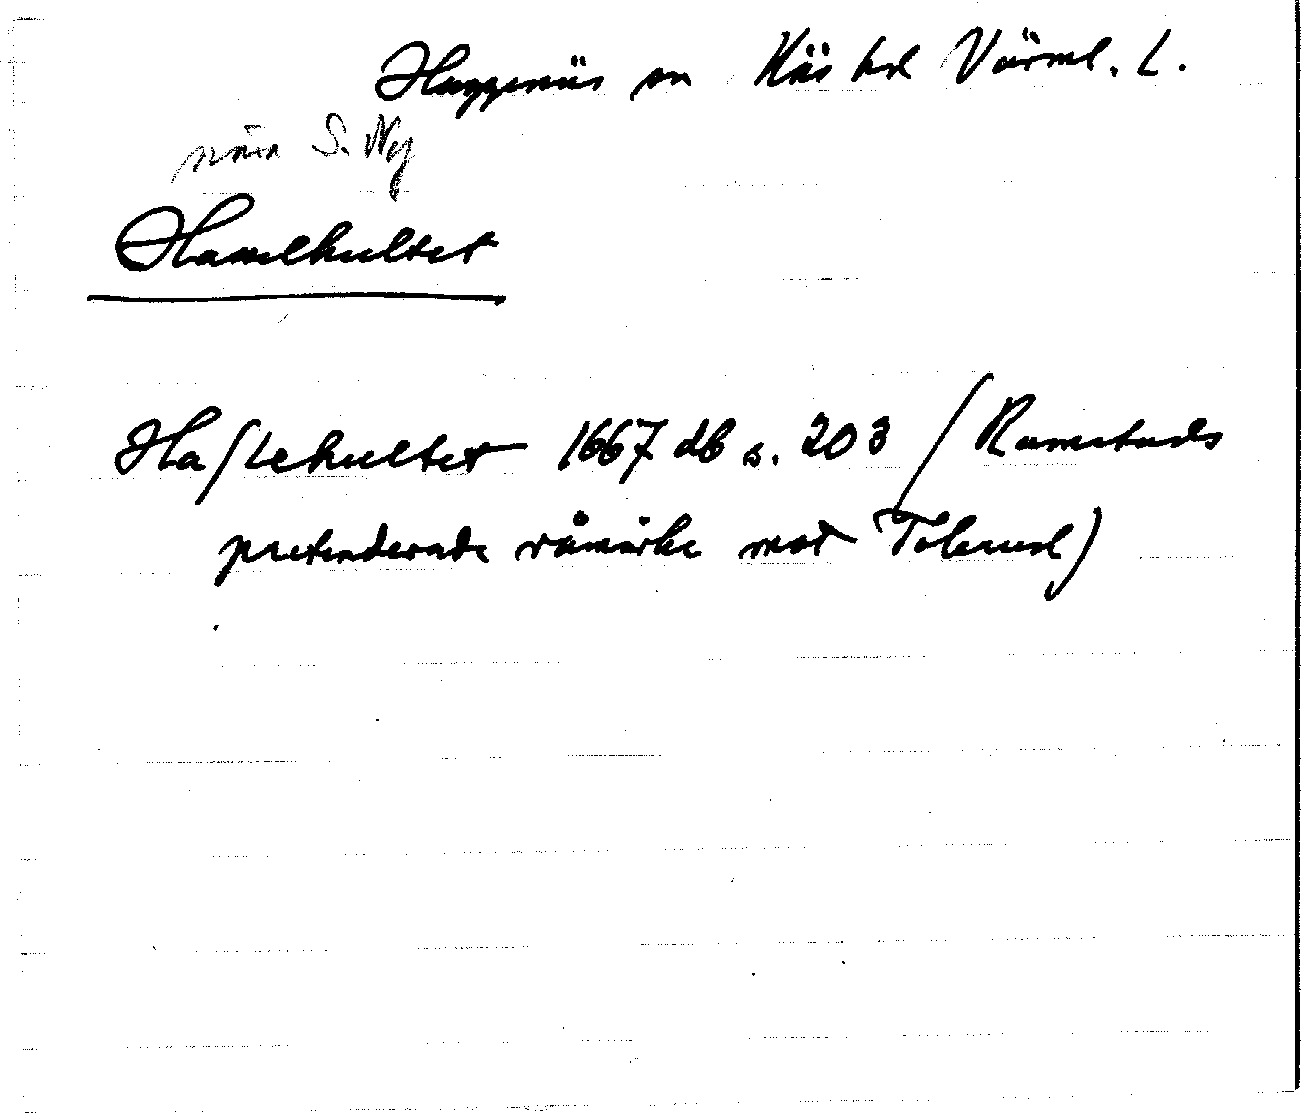 Huggenäs sn Näs hd Värml. L.
nära S. Ny
Hasselhultet
Haſlehultet 1667 db s. 203 / Ramstads
pretenderade råmärke mot Tolerud)